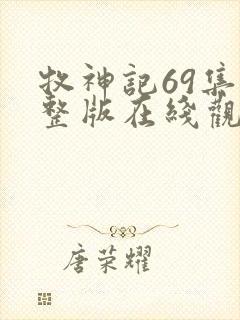 牧神記69集
整版在綫觀
唐荣耀